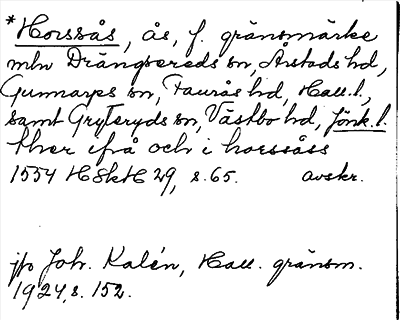 *Horssås, ås, f. gränsmärke
mln Drängsereds sn, Årstads hd,
Gunnarps sn, Faurås hd, Hall.l.,
samt Gryteryds sn, Västbo hd, Jönk.l.
ther ifrå och i horssåss
1554 HSkH 29, s. 65. avskr.
jfr Joh. Kalén, Hall. gränsm.
1924, s. 152.